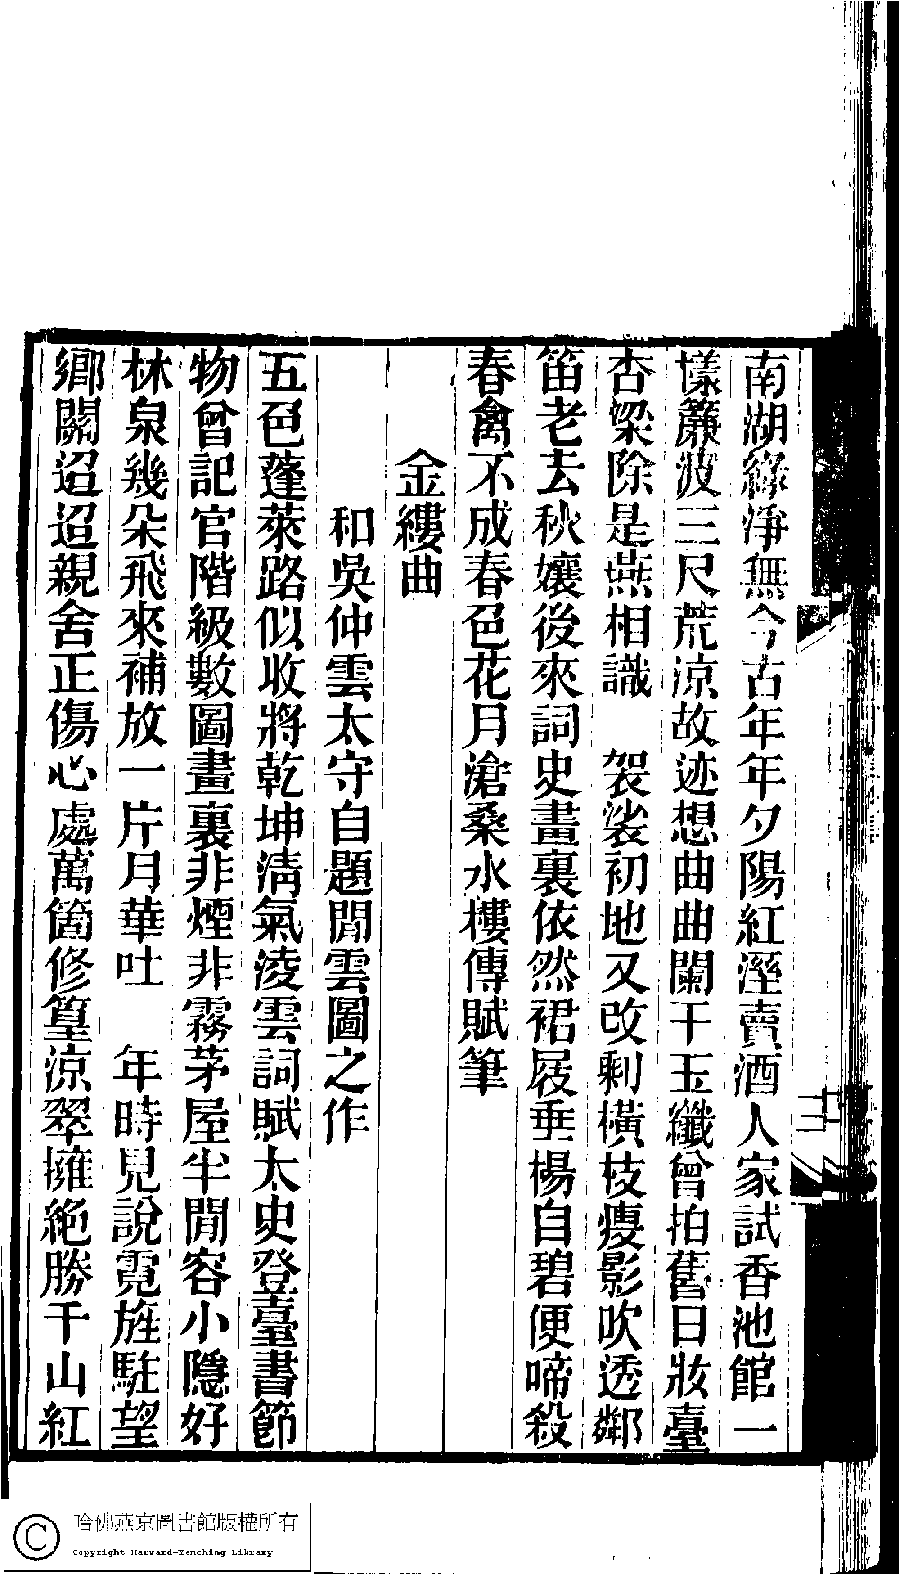 南湖綠淨無今古年年夕陽紅溼賣酒人家試香池館一
㨾簾波三尺荒涼故迹想曲曲闌干玉纖曾拍舊日妝臺
杏梁除是燕相識　袈裟初地又改剩橫枝瘦影吹透鄰
笛老去秋孃後來詞史畫裏依然裙屐垂楊自碧便啼殺
春禽不成春色花月滄桑水樓傳賦筆
金縷曲
和吳仲雲太守自題閒雲圖之作
五色蓬萊路似收將乾坤清氣淩雲詞賦太史登臺書節
物曾記官階級數圖畫裏非煙非霧茅屋半閒容小隱好
林泉幾朵飛來補放一片月華吐　年時見說霓旌駐望
鄉關迢迢親舍正傷心處萬箇修篁涼翠擁絕勝千山紅
十二
哈佛燕京圖書館版權所有
Copyright Harvard-Yenching Library